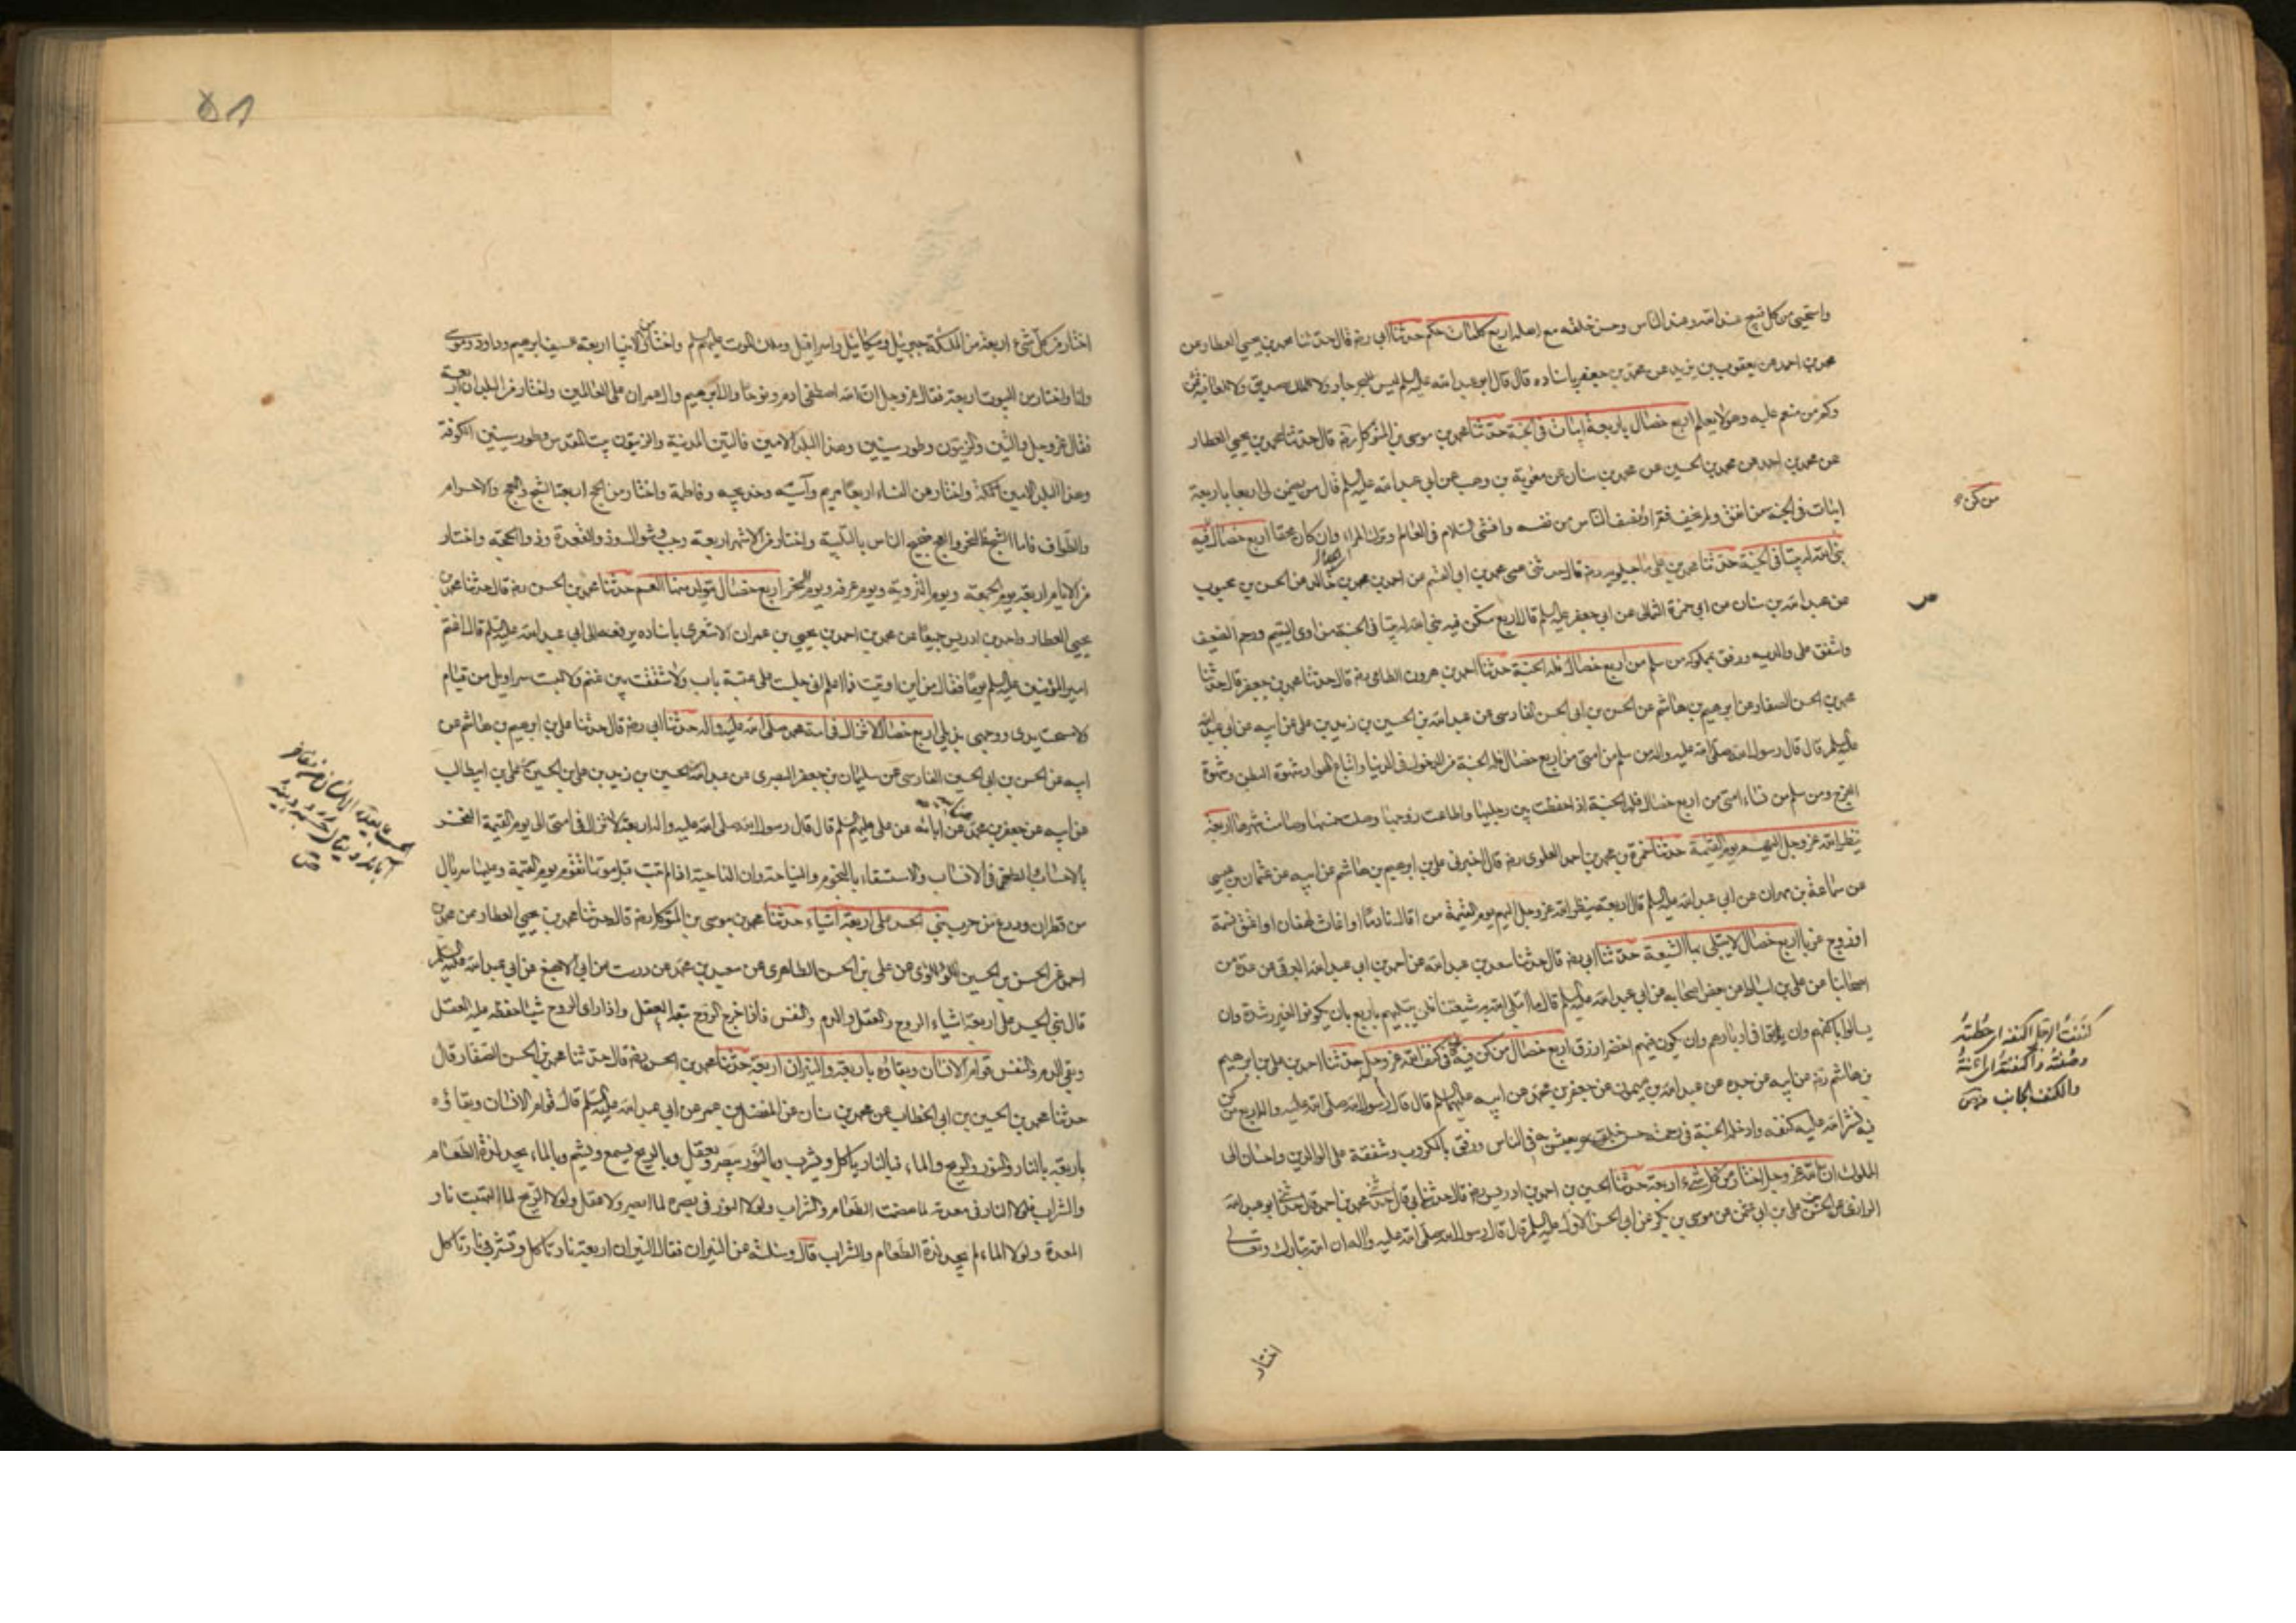 واستحيى من كل قبيح عند الله وعند الناس وحسن خلقه مع اهله اربع كلمات حكم حدثنا ابي رضه قال حدثنا محمد بن يحيى العطار عن
محمد بن احمد عن يعقوب بن يزيد عن محمد بن جعفر باسناده قال قال ابو عبد الله عليه السلم ليس للبحر جار ولا للملك صديق ولا للعافية ثمن
وكم من منعم عليه وهو لا يعلم اربع خصال باربعة ابيات في الجنة حدثنا محمد بن موسى بن المتوكل رضه قال حدثنا محمد بن يحيى العطار
عن محمد بن احمد عن محمد بن الحسين عن محمد بن سنان عن معوية بن وهب عن ابي عبد الله عليه السلم قال من يضمن لي اربعا باربعة
من كن
ابيات في الجنة من انفق ولم يخف فقرا وانصف الناس من نفسه وافشى السلام في العالم وترك المراء وان كان محقا اربع خصال فيه
بنى الله له بيتا في الجنة حدثنا محمد بن علي ماجيلويه رضه قال حدثني عمي محمد بن ابي القسم عن احمد بن محمد بن خالد عن الحسن بن محبوب
عن عبد الله بن سنان عن ابي حمزة الثمالي عن ابي جعفر عليه السلم قال اربع من كن فيه بنى الله له بيتا في الجنة من اوى اليتيم ورحم الضعيف
واشفق على والديه ورفق بمملوكه من سلم من اربع خصال فله الجنة حدثنا احمد بن هرون الفامي رضه قال حدثنا محمد بن جعفر قال حدثنا
محمد بن الحسن الصفار عن ابرهيم بن هاشم عن الحسن بن ابي الحسن الفارسي عن عبد الله بن الحسين بن زيد بن علي عن ابيه عن ابي عبد الله
عليه السلم قال قال رسول الله صلى الله عليه واله من سلم من امتي من اربع خصال فله الجنة من الدخول في الدنيا واتباع الهوا وشهوة البطن وشهوة
الفرج ومن سلم من نساء امتي من اربع خصال فلها الجنة اذا حفظت بين رجليها واطاعت زوجها وصلت خمسها وصامت شهرها اربعة
ينظر الله عز وجل اليهم يوم القيمة حدثنا حمزة بن محمد بن احمد العلوي رضه قال اخبرني علي بن ابرهيم بن هاشم عن ابيه عن عثمان بن عيسى
عن سماعة بن مهران عن ابي عبد الله عليه السلم قال اربعة ينظر الله عز وجل اليهم يوم القيمة من اقال نادما او اغاث لهفان او اعتق نسمة
او زوج عزبا اربع خصال لا يبتلى بها الشيعة حدثنا ابي رضه قال حدثنا سعد بن عبد الله عن احمد بن ابي عبد الله البرقي عن عدة من
اصحابنا عن علي بن اسباط عن بعض اصحابه عن ابي عبد الله عليه السلم قال ما ابتلى الله به شيعتنا فلن يبتليهم باربع بان يكونوا لغير رشدة وان
يسالوا باكفهم وان يؤتوا في ادبارهم وان يكون فيهم اخضر ازرق اربع خصال من كن فيه كان في كنف الله عز وجل حدثنا احمد بن علي بن ابرهيم
بن هاشم رضه عن ابيه عن جده عن عبد الله بن ميمون عن جعفر بن محمد عن ابيه عليهما السلم قال قال رسول الله صلى الله عليه واله اربع من كن
فيه نشر الله عليه كنفه وادخله الجنة في رحمته حسن خلق يعيش به في الناس ورفق بالمكروب وشفقة على الوالدين واحسان الى
المملوك ان الله عز وجل اختار من كل شيء اربعة حدثنا الحسين بن احمد بن ادريس رضه قال حدثنا ابي قال حدثني محمد بن احمد قال حدثني ابو عبد الله
الرازي عن الحسن بن علي بن ابي عثمن عن موسى بن بكر عن ابي الحسن الاول عليه السلم قال قال رسول الله صلى الله عليه واله ان الله تبارك وتعالى
اختار
كنفت الرجل اكنفه اي حطته
وصنته واكنفته اي اعنته
والكنف الجانب
اختار من كل شيء اربعة من الملئكة جبرئيل وميكائيل واسرافيل وملك الموت عليهم السلم واختار من الانبيا اربعة للسيف ابرهيم وداود وموسى
وانا واختار من البيوت اربعة فقال عز وجل ان الله اصطفى ادم ونوحا وال ابرهيم وال عمران على العالمين واختار من البلدان اربعة
فقال عز وجل والتين والزيتون وطور سينين وهذا البلد الامين فالتين المدينة والزيتون بيت المقدس وطور سينين الكوفة
وهذا البلد الامين مكة واختار من النساء اربعا مريم وآسية وخديجة وفاطمة واختار من الحج اربعة الثج والعج والاحرام
والطواف فاما الثج فالنحر والعج ضجيج الناس بالتلبية واختار من الاشهر اربعة رجب وشوال وذو القعدة وذو الحجة واختار
من الايام اربعة يوم الجمعة ويوم التروية ويوم عرفة ويوم النحر اربع خصال يتولد منها الغم حدثنا محمد بن الحسن رضه قال حدثنا محمد بن
يحيى العطار واحمد بن ادريس جميعا عن محمد بن احمد بن يحيى بن عمران الاشعري باسناده يرفعه الى ابي عبد الله عليه السلم قال اغتم
امير المؤمنين عليه السلم يوما فقال من اين اوتيت فما اعلم اني جلست على عتبة باب ولا شققت بين غنم ولا لبست سراويل من قيام
ولا مسحت يدي ووجهي بذيلي اربع خصال لا تزال في امة محمد صلى الله عليه واله حدثنا ابي رضه قال حدثنا علي بن ابرهيم بن هاشم عن
ابيه عن الحسن بن ابي الحسين الفارسي عن سليمان بن جعفر البصري عن عبد الله بن الحسين بن زيد بن علي بن الحسين بن علي بن ابيطالب
عن ابيه عن جعفر بن محمد عن آبائه عن علي عليهم السلم قال قال رسول الله صلى الله عليه واله اربعة لا تزال في امتي الى يوم القيمة الفخر
بالاحساب والطعن في الانساب والاستسقاء بالنجوم والنياحة وان النائحة اذا لم تتب قبل موتها تقوم يوم القيمة وعليها سربال
من قطران ودرع من جرب بني الجسد على اربعة اشياء حدثنا محمد بن موسى بن المتوكل رضه قال حدثنا محمد بن يحيى العطار عن محمد بن
احمد عن الحسن بن الحسين اللؤلؤي عن علي بن الحسن الطاطري عن سعيد بن محمد عن درست عن ابي الاصبغ عن ابي عبد الله عليه السلم
قال بني الجسد على اربعة اشياء الروح والعقل والدم والنفس فاذا خرج الروح تبعه العقل واذا راى الروح شيئا حفظه عليه العقل
وبقي الدم والنفس قوام الانسان وبقاؤه باربعة والنيران اربعة حدثنا محمد بن الحسن رضه قال حدثنا محمد بن الحسن الصفار قال
حدثنا محمد بن الحسين بن ابي الخطاب عن محمد بن سنان عن المفضل بن عمر عن ابي عبد الله عليه السلم قال قوام الانسان وبقاؤه
باربعة بالنار والنور والريح والماء فبالنار ياكل ويشرب وبالنور يبصر ويعقل وبالريح يسمع ويشم وبالماء يجد لذة الطعام
والشراب فلولا النار في معدته لما هضمت الطعام والشراب ولولا النور في بصره لما ابصر ولا عقل ولولا الريح لما التهبت نار
المعدة ولولا الماء لم يجد لذة الطعام والشراب قال وسالته عن النيران فقال النيران اربعة نار تاكل وتشرب ونار تاكل